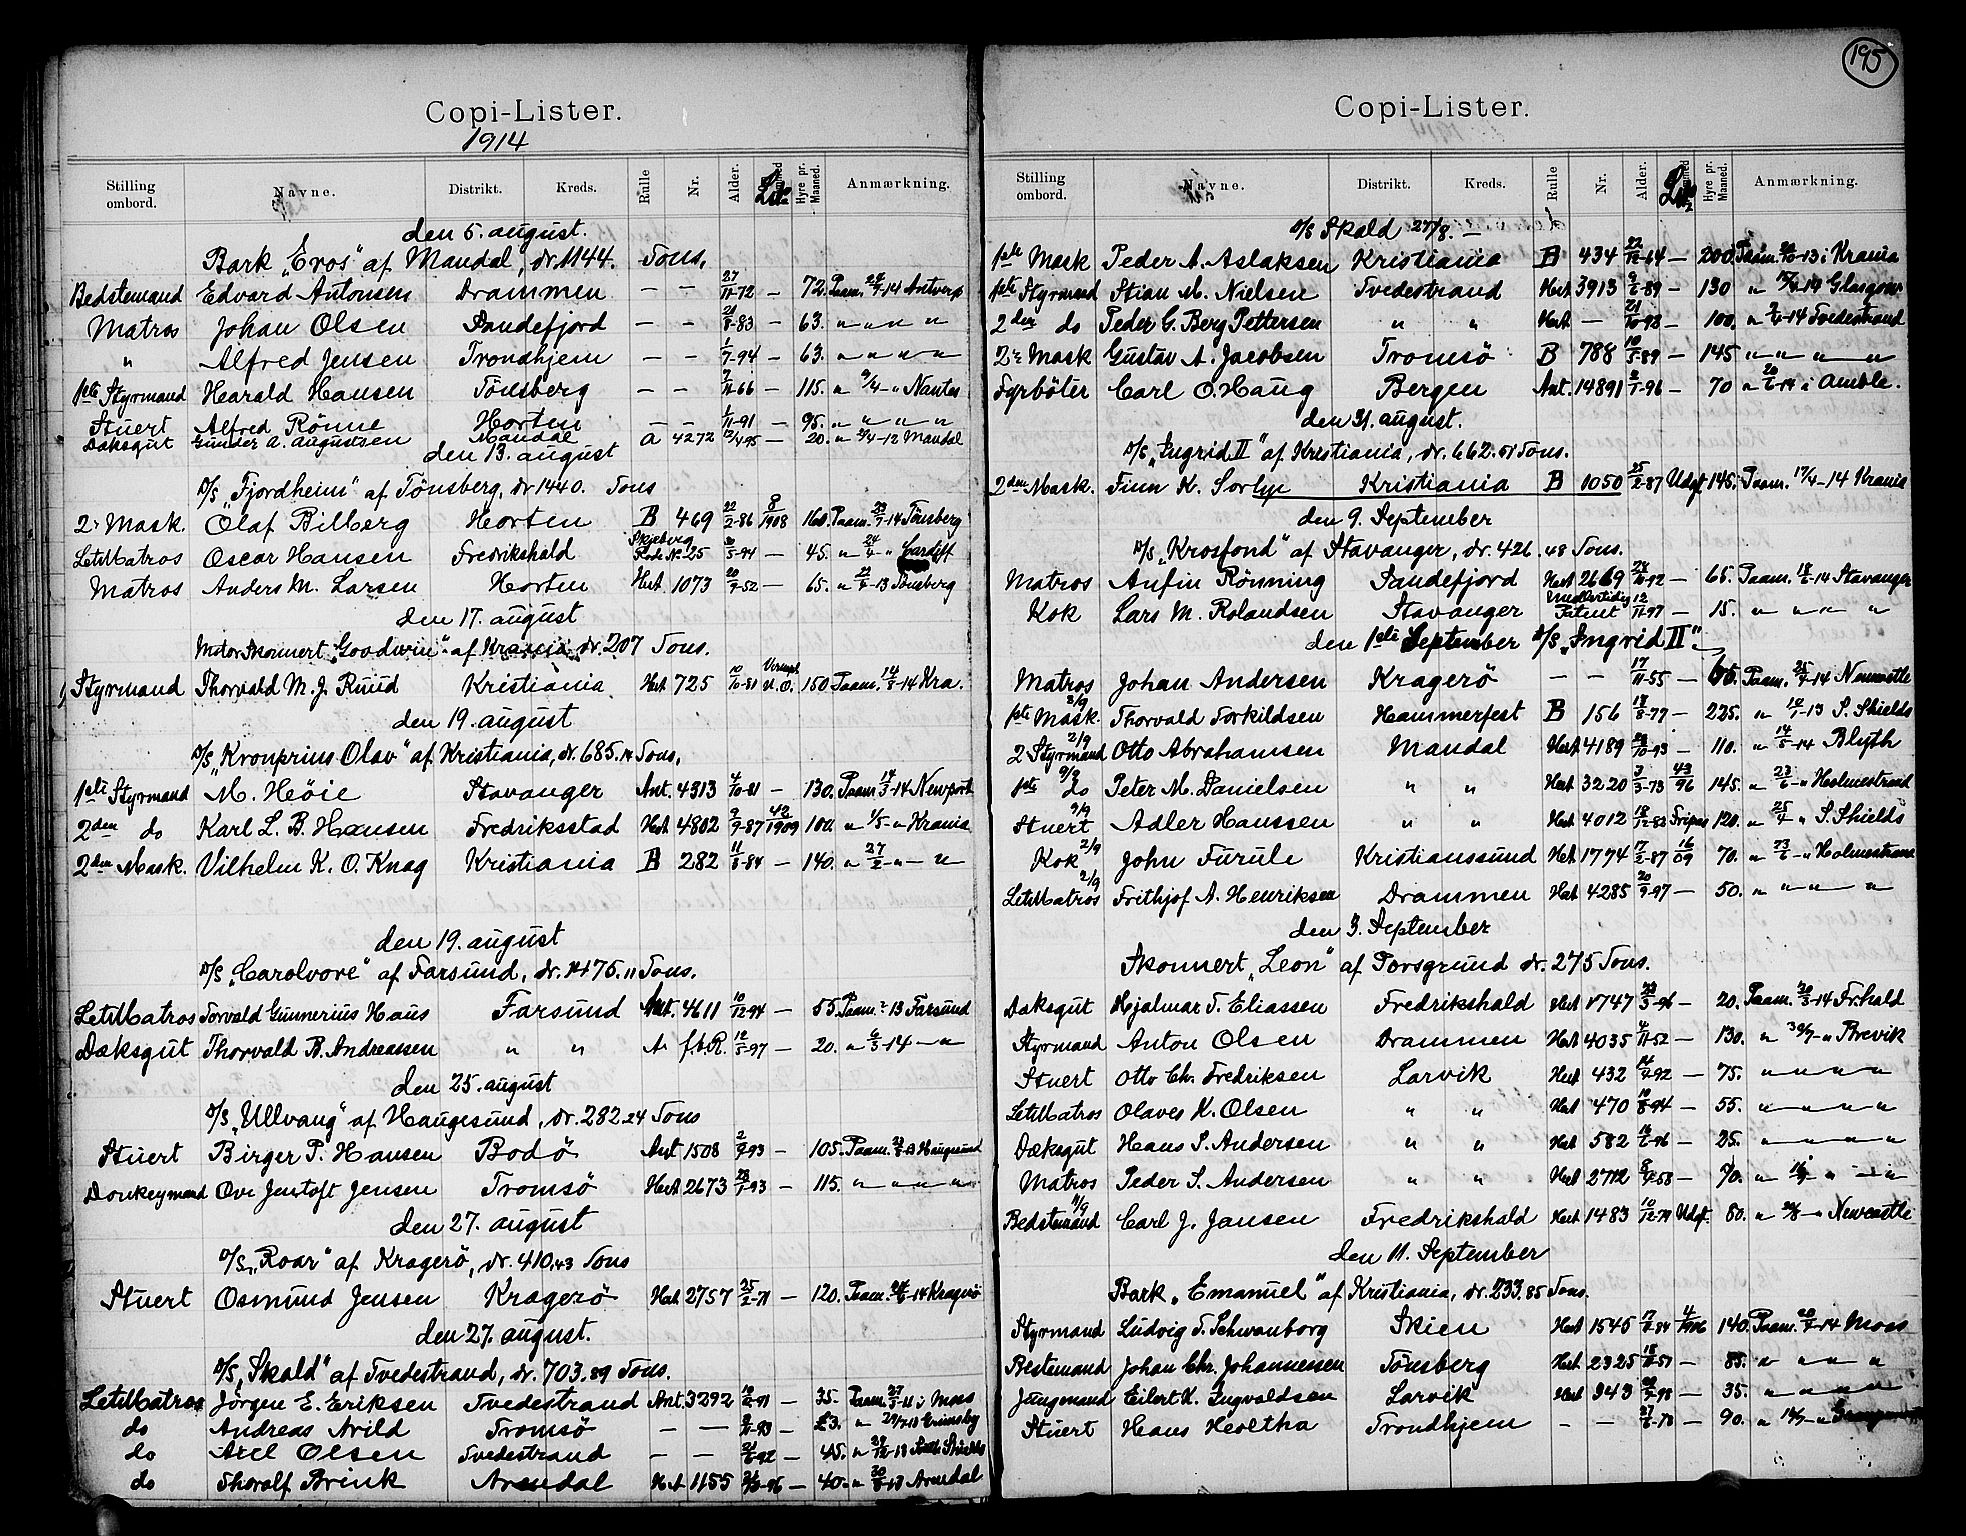 Copi-Lister.
1914
Stilling ombord. Navne. Distrikt. Kreds. Rulle Nr. Alder. Hyre pr. Maaned. Anmærkning.
den 5. august.
Bark „Eros“ af Mandal, dr. 1144. Tons.
Bedstemand Edvard Antonsen Drammen — — 27/11-72 — 72. Paam. 24/7-14 Antverp
Matros Johan Olsen Sandefjord — — 21/8-83 — 63. „ „ „ „
„ Alfred Jensen Trondhjem — — 1/7-94 — 63. „ „ „ „
1ste Styrmand Harald Hansen Tönsberg — — 7/11-66 — 115. „ 9/4 - „ Nantes
Stuert Alfred Rönne Horten — — 1/11-91 — 95. „ „ „ „
Dæksgut Gunder A. Augustsen Mandal A 4272 12/4 95 — 20. „ 4-12 Mandal
den 13. august
D/S „Fjordheim“ af Tönsberg, dr 1440. Tons
2. Mask. Olaf Bilberg Horten B 469 22/2-86 8/1908 160. Paam. 23/7-14 Tönsberg
Let.Matros Oscar Hansen Fredrikshald Skjeberg Rode No. 25 5-94 — 45. „ 24/4 „ Cardiff
Matros Anders M. Larsen Horten Hvt. 1073 20/7-52 — 65. „ -13 Tönsberg
den 17. august
Motor Skonnert „Goodwin“ af Krania dr. 207 Tons.
Styrmand Thorvald M. J. Ruud Kristiania Hvt 725 10/10-81 U.O. 150 Paam. 14/8-14 Kra.
den 19. august
D/S „Kronprins Olav“ af Kristiania, dr. 685.14 Tons.
1ste Styrmand M. Höie Stavanger Ant. 4313 4/10-81 — 130. Paam. 14/3-14 Newport
2den do Karl L. B. Hansen Fredriksstad Hvt 4802 2/9-87 42/1909 100. „ 1/5 - „ Krania
2den Mask. Vilhelm K. O. Knag Kristiania B 282 11/8-84 — 140. „ 27/2 - „ — „
den 19. august
D/S „Carolvore“ af Farsund, dr. 1475.11 Tons.
Let.Matros Torvald Gunnerius Haus Farsund Ant. 4611 10/12-94 — 55. Paam. -13 Farsund
Dæksgut Thorvald B. Andreassen „ „ A. f.t.R. 12/5-97 — 20. „ 6/3-14 — „
den 25. august
D/S „Ullvang“ af Haugesund, dr. 282.24 Tons
Stuert Birger P. Hansen Bodö Ant 1508 2/9-93 — 105. Paam. -13 Haugesund
Donkeymand Ove Jentoft Jensen Tromsö Hvt 2673 23/1-93 — 115. „ „ „ „
den 27. august
D/S „Roar“ af Kragerö, dr. 410.43 Tons
Stuert Osmund Jensen Kragerö Hvt. 2757 25/2-71 — 120. Paam. -14 Kragerö
den 27. august.
D/S „Skald“ af Tvedestrand, dr. 703.89 Tons.
Let.Matros Jörgen E. Eriksen Tvedestrand Ant. 3292 — 35. Paam. 27/3-11 i Moss
do Andreas Arild Tromsö — — — £3. „ Grimsby
do Axel Olsen Tvedestrand — — — 45. „ 29/12-13 South Shields
do Thoralf Brink Arendal Hvt 1155 — 40. „ -13 Arendal
195
Copi-Lister.
Stilling ombord. Navne. Distrikt. Kreds. Rulle Nr. Alder. Hyre pr. Maaned. Anmærkning.
D/S Skald 27/8. —
1ste Mask Peder A. Aslaksen Kristiania B 434 22/12-64 — 200 Paam. -13 i Krania
1ste Styrmand Stian M. Nielsen Tvedestrand Hvt 3913 9/6-89 — 130 „ -14 Glasgow
2den do Peder G. Berg Pettersen „ „ Hvt — 21/10-93 — 100. „ -14 Tvedestrand
2. Mask Gustav A. Jacobsen Tromsö B 788 10/5-89 — 145 „ „ „ „
Fyrböter Carl O. Haug Bergen Ant. 14891 2/7-96 — 70 „ 20/6-14 i Amble.
den 31. august.
D/S „Ingrid II“ af Kristiania, dr. 662.51 Tons.
2den Mask. Finn K. Sorlye Kristiania B 1050 25/2-87 Udgf 145. Paam. 17/4-14 Krania
den 9. September
D/S „Krosfond“ af Stavanger, dr. 421.48 Tons.
Matros Anfin Rönning Sandefjord Hvt 2669 — 65. Paam. 18/6-14 Stavanger
Kok Lars M. Rolandsen Stavanger Midlertidig Patent 12/11-97 — 15. „ „ „ „
den 1ste September D/S „Ingrid II“.
Matros Johan Andersen Kragerö — — 17/11-55 — 65. Paam. 25/7-14 Newcastle
2/9
1ste Mask. Thorvald Torkildsen Hammerfest B 156 18/8-77 — 225. „ 10/1-13 S. Shields
2/9
2 Styrmand Otto Abrahamsen Mandal Hvt 4189 — 110. „ 14/5-14 Blyth
9/9
1ste do Peter M. Danielsen „ „ Hvt 3220 3/3-73 43/96 145. „ 23/6 - „ Holmestrand
9/9
Stuert Adler Hanssen „ „ Hvt 4012 18/12-82 Fripas 120. „ 25/4 „ S. Shields
2/9
Kok John Furule Kristianssund Hvt 1774 17/2-87 16/09 70. „ 23/6 - „ Holmestrand
2/9
Let.Matros Frithjof A. Henriksen Drammen Hvt 4285 20/9-97 — 50. „ „ „ „
den 3. September
Skonnert „Leon“ af Porsgrund dr. 275 Tons.
Dæksgut Hjalmar T. Eliassen Fredrikshald Hvt 1747 23/3-96 — 20. Paam. 20/3-14 Fr.hald
Styrmand Anton Olsen Drammen Hvt 4035 4/11-52 — 130. „ 30/7 - „ Brevik
Stuert Otto Chr. Fredriksen Larvik Hvt 432 — 75. „ „ „
Let.Matros Olaves K. Olsen „ „ Hvt 470 10/8-94 — 55. „ „ „ „
Dæksgut Hans S. Andersen „ „ Hvt 582 — 25. „ „ „
Matros Peder S. Andersen „ „ Hvt 2712 — 70. „ „ — „
11/9
Bedstemand Carl J. Jansen Fredrikshald Hvt 1483 10/12-79 Udgf. 80. „ „ Newcastle
den 11. September
Bark „Emanuel“ af Kristiania, dr. 233.85 Tons.
Styrmand Ludvig T. Schwanborg Skien Hvt 1545 140. Paam. 20/7-14 Moss
Bestemand Johan Chr. Johannessen Tönsberg Hvt. 2325 — 85. „ „ „ „
Jungmand Eilert K. Ingvaldsen Larvik Hvt 343 — 35. „ „ „
Stuert Hans Heoltha Trondhjem — — 27/6-78 — 90. „ 14/7 - „